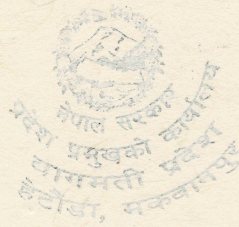 नेपाल सरकार
प्रदेश प्रमुखको कार्यालय
वागमती प्रदेश
हेटौंडा, मकवानपुर